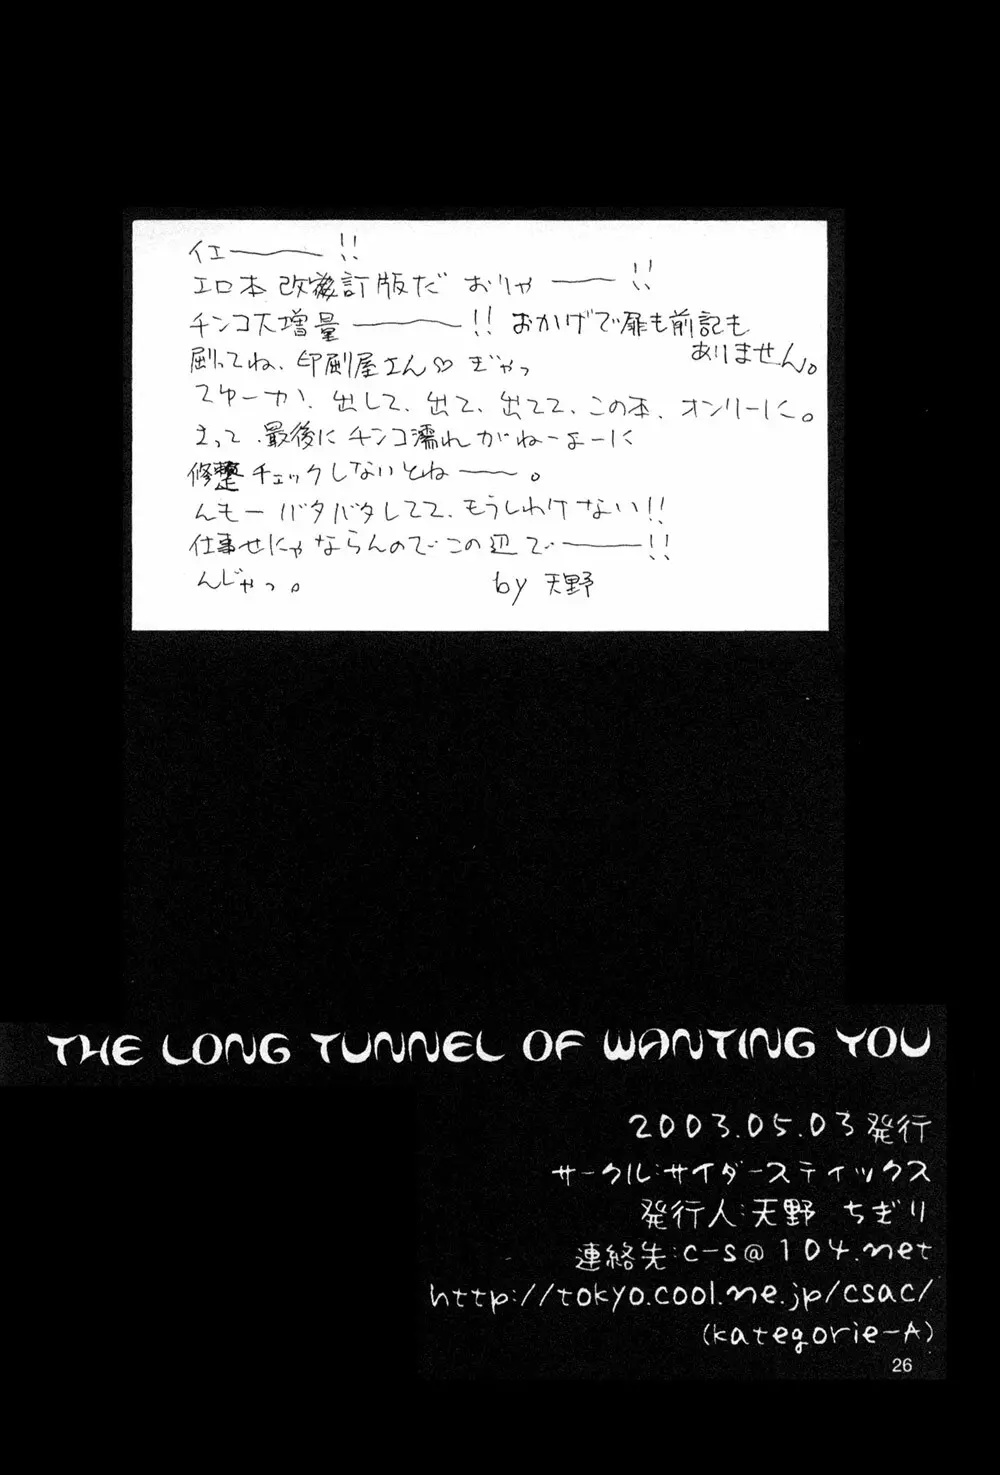 イエーー!!
エロ本 改訂版だ おりゃーー!!
チンコ大増量ーー!! おかげで扉も前記も
ありません。
刷ってね、印刷屋さん♡ ぎゃっ
てゆーか、出して、出て、出てて、この本、オンリーに。
さって、最後にチンコ濡れがねーよーに
修整チェックしないとねーー。
んもー バタバタしてて、もうしわけない!!
仕事せにゃならんのでこの辺でーー!!
んじゃっ。 by 天野
THE LONG TUNNEL OF WANTING YOU
2003.05.03発行
サークル:サイダースティックス
発行人:天野 ちぎり
連絡先:c-s@104.net
http://tokyo.cool.ne.jp/csac/
(kategorie-A)
26